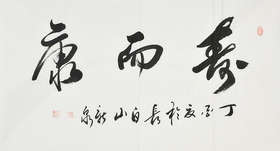 寿而康
丁酉夏於長白山